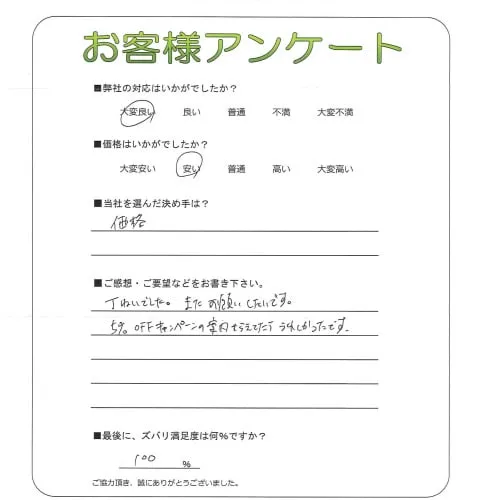 お客様アンケート
■弊社の対応はいかがでしたか?
大変良い 良い 普通 不満 大変不満
■価格はいかがでしたか?
大変安い 安い 普通 高い 大変高い
■当社を選んだ決め手は?
価格
■ご感想・ご要望などをお書き下さい。
丁ねいでした。またお願いしたいです。
5% OFFキャンペーンの案内もらえてたらうれしかったです。
■最後に、ズバリ満足度は何%ですか?
100 %
ご協力頂き、誠にありがとうございました。